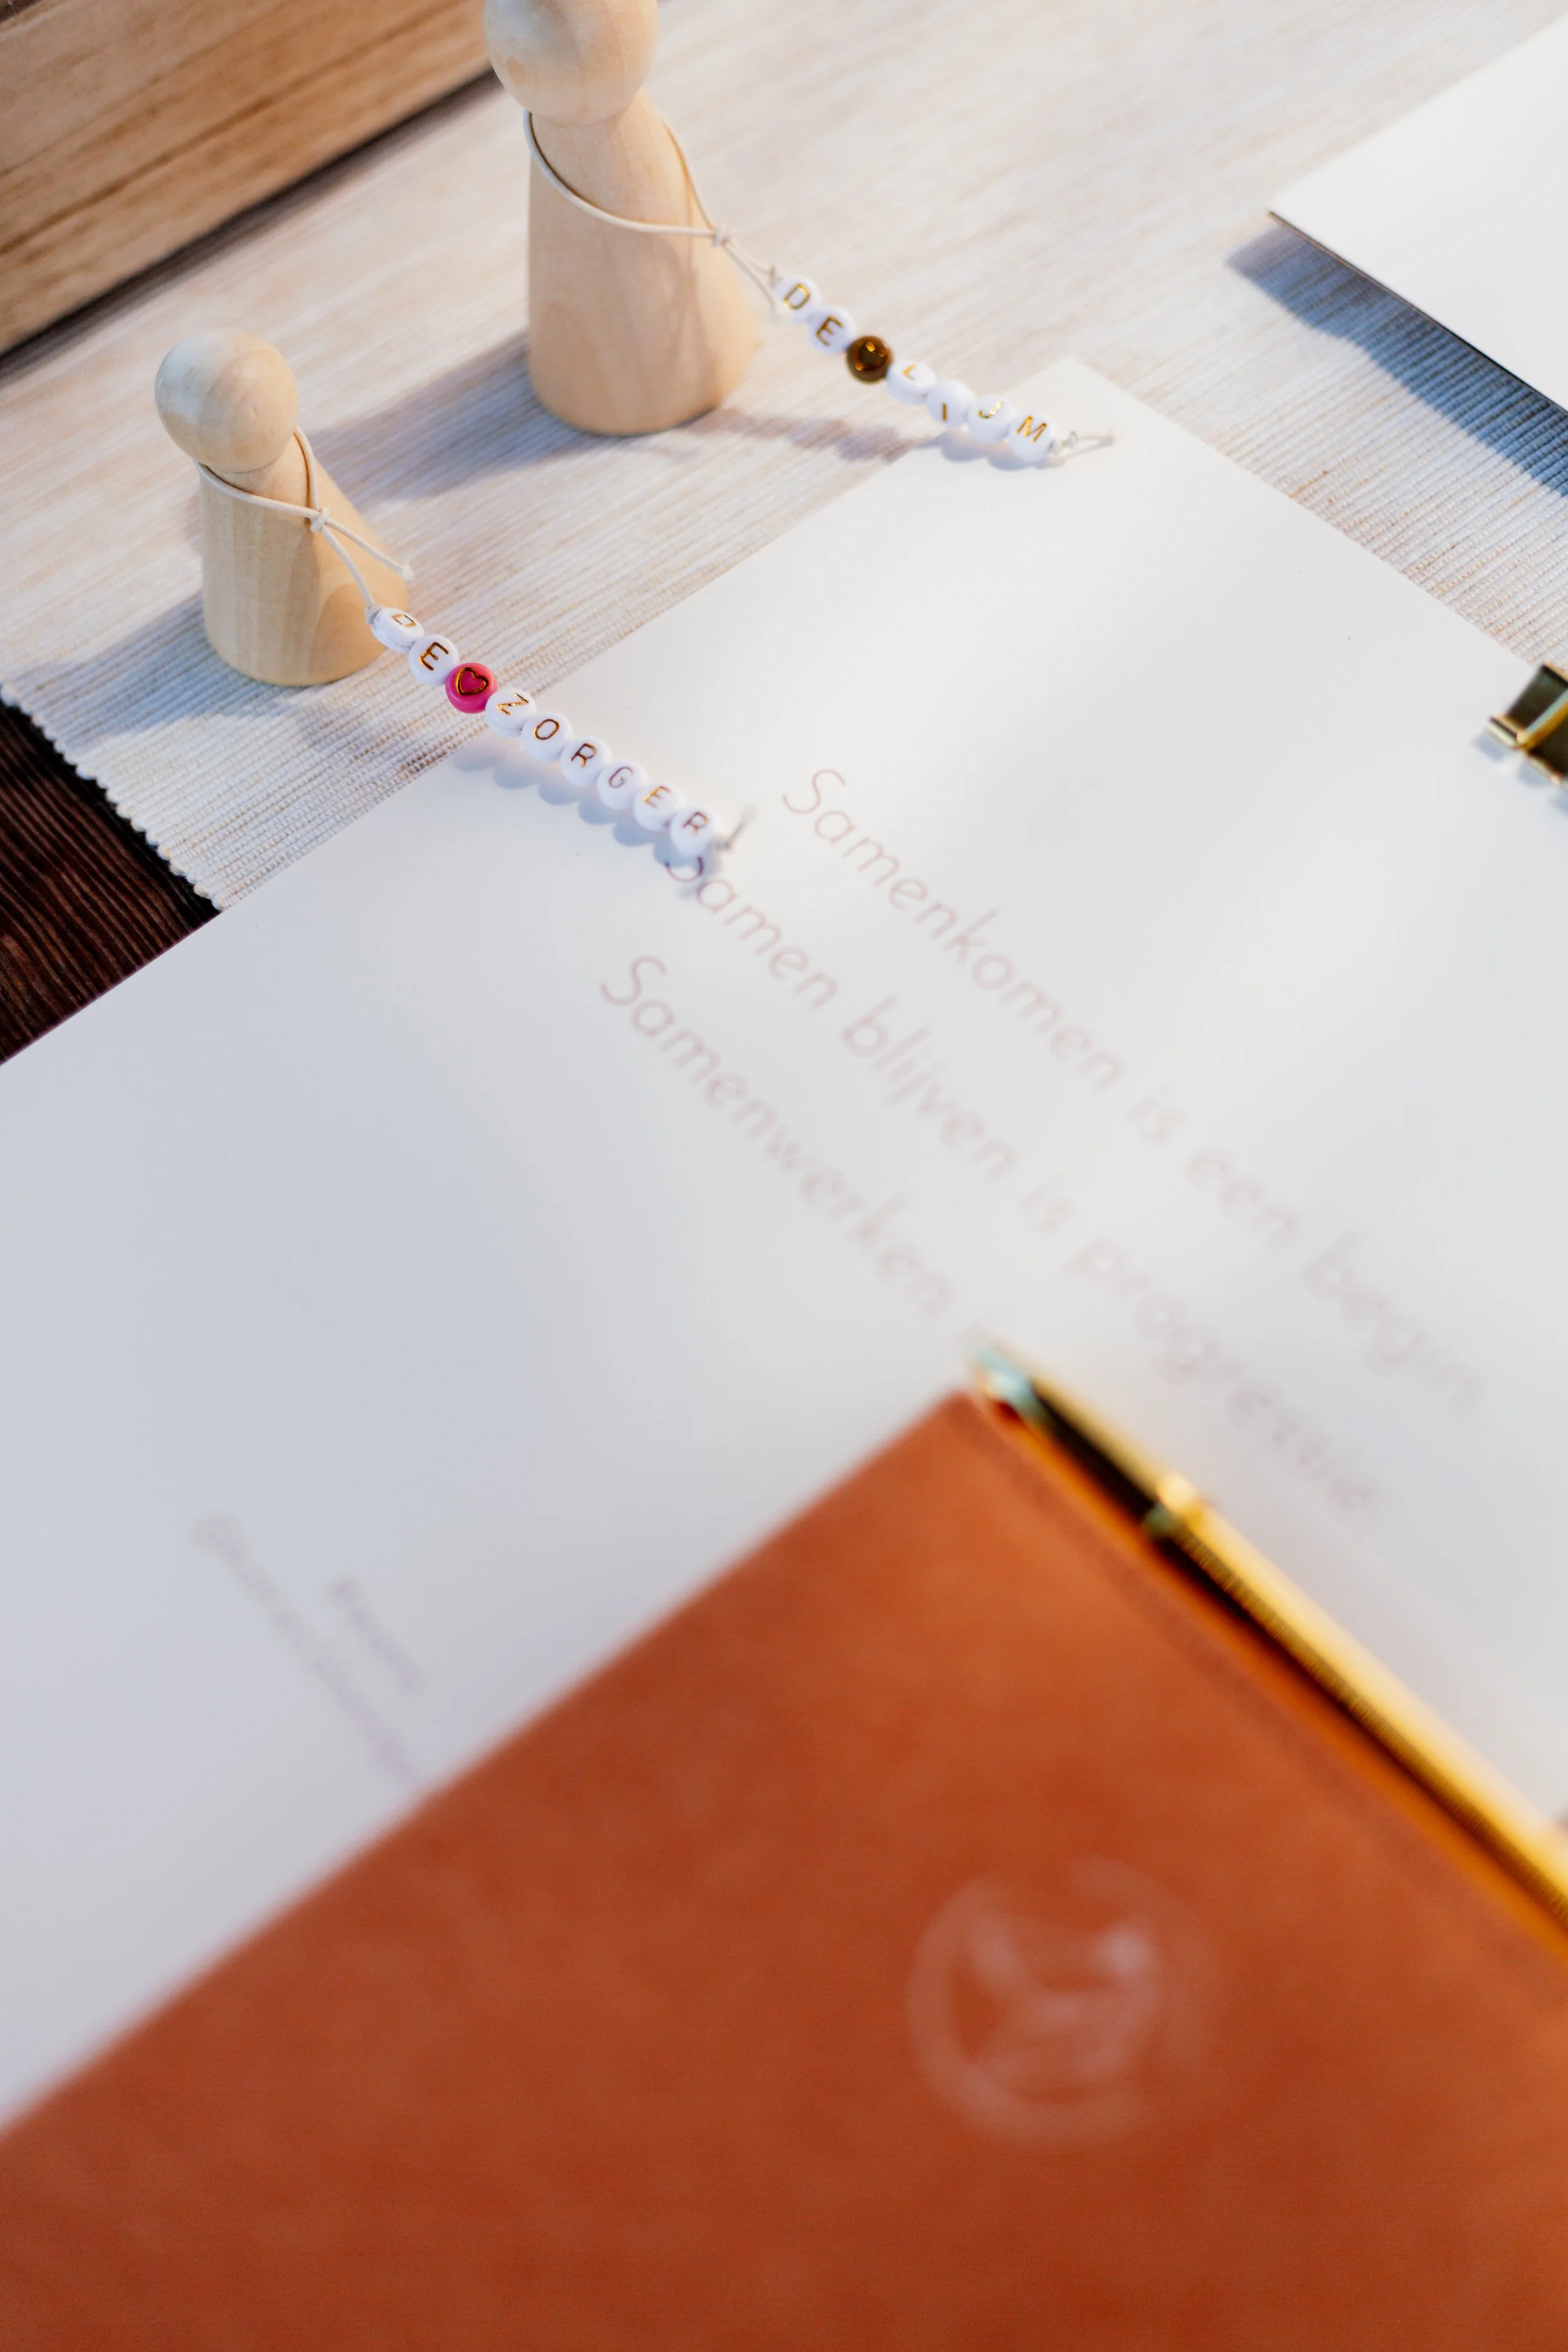 DE LIJM
DE ZORGER
Samenkomen is een begin
Samen blijven is progressie
Samenwerken